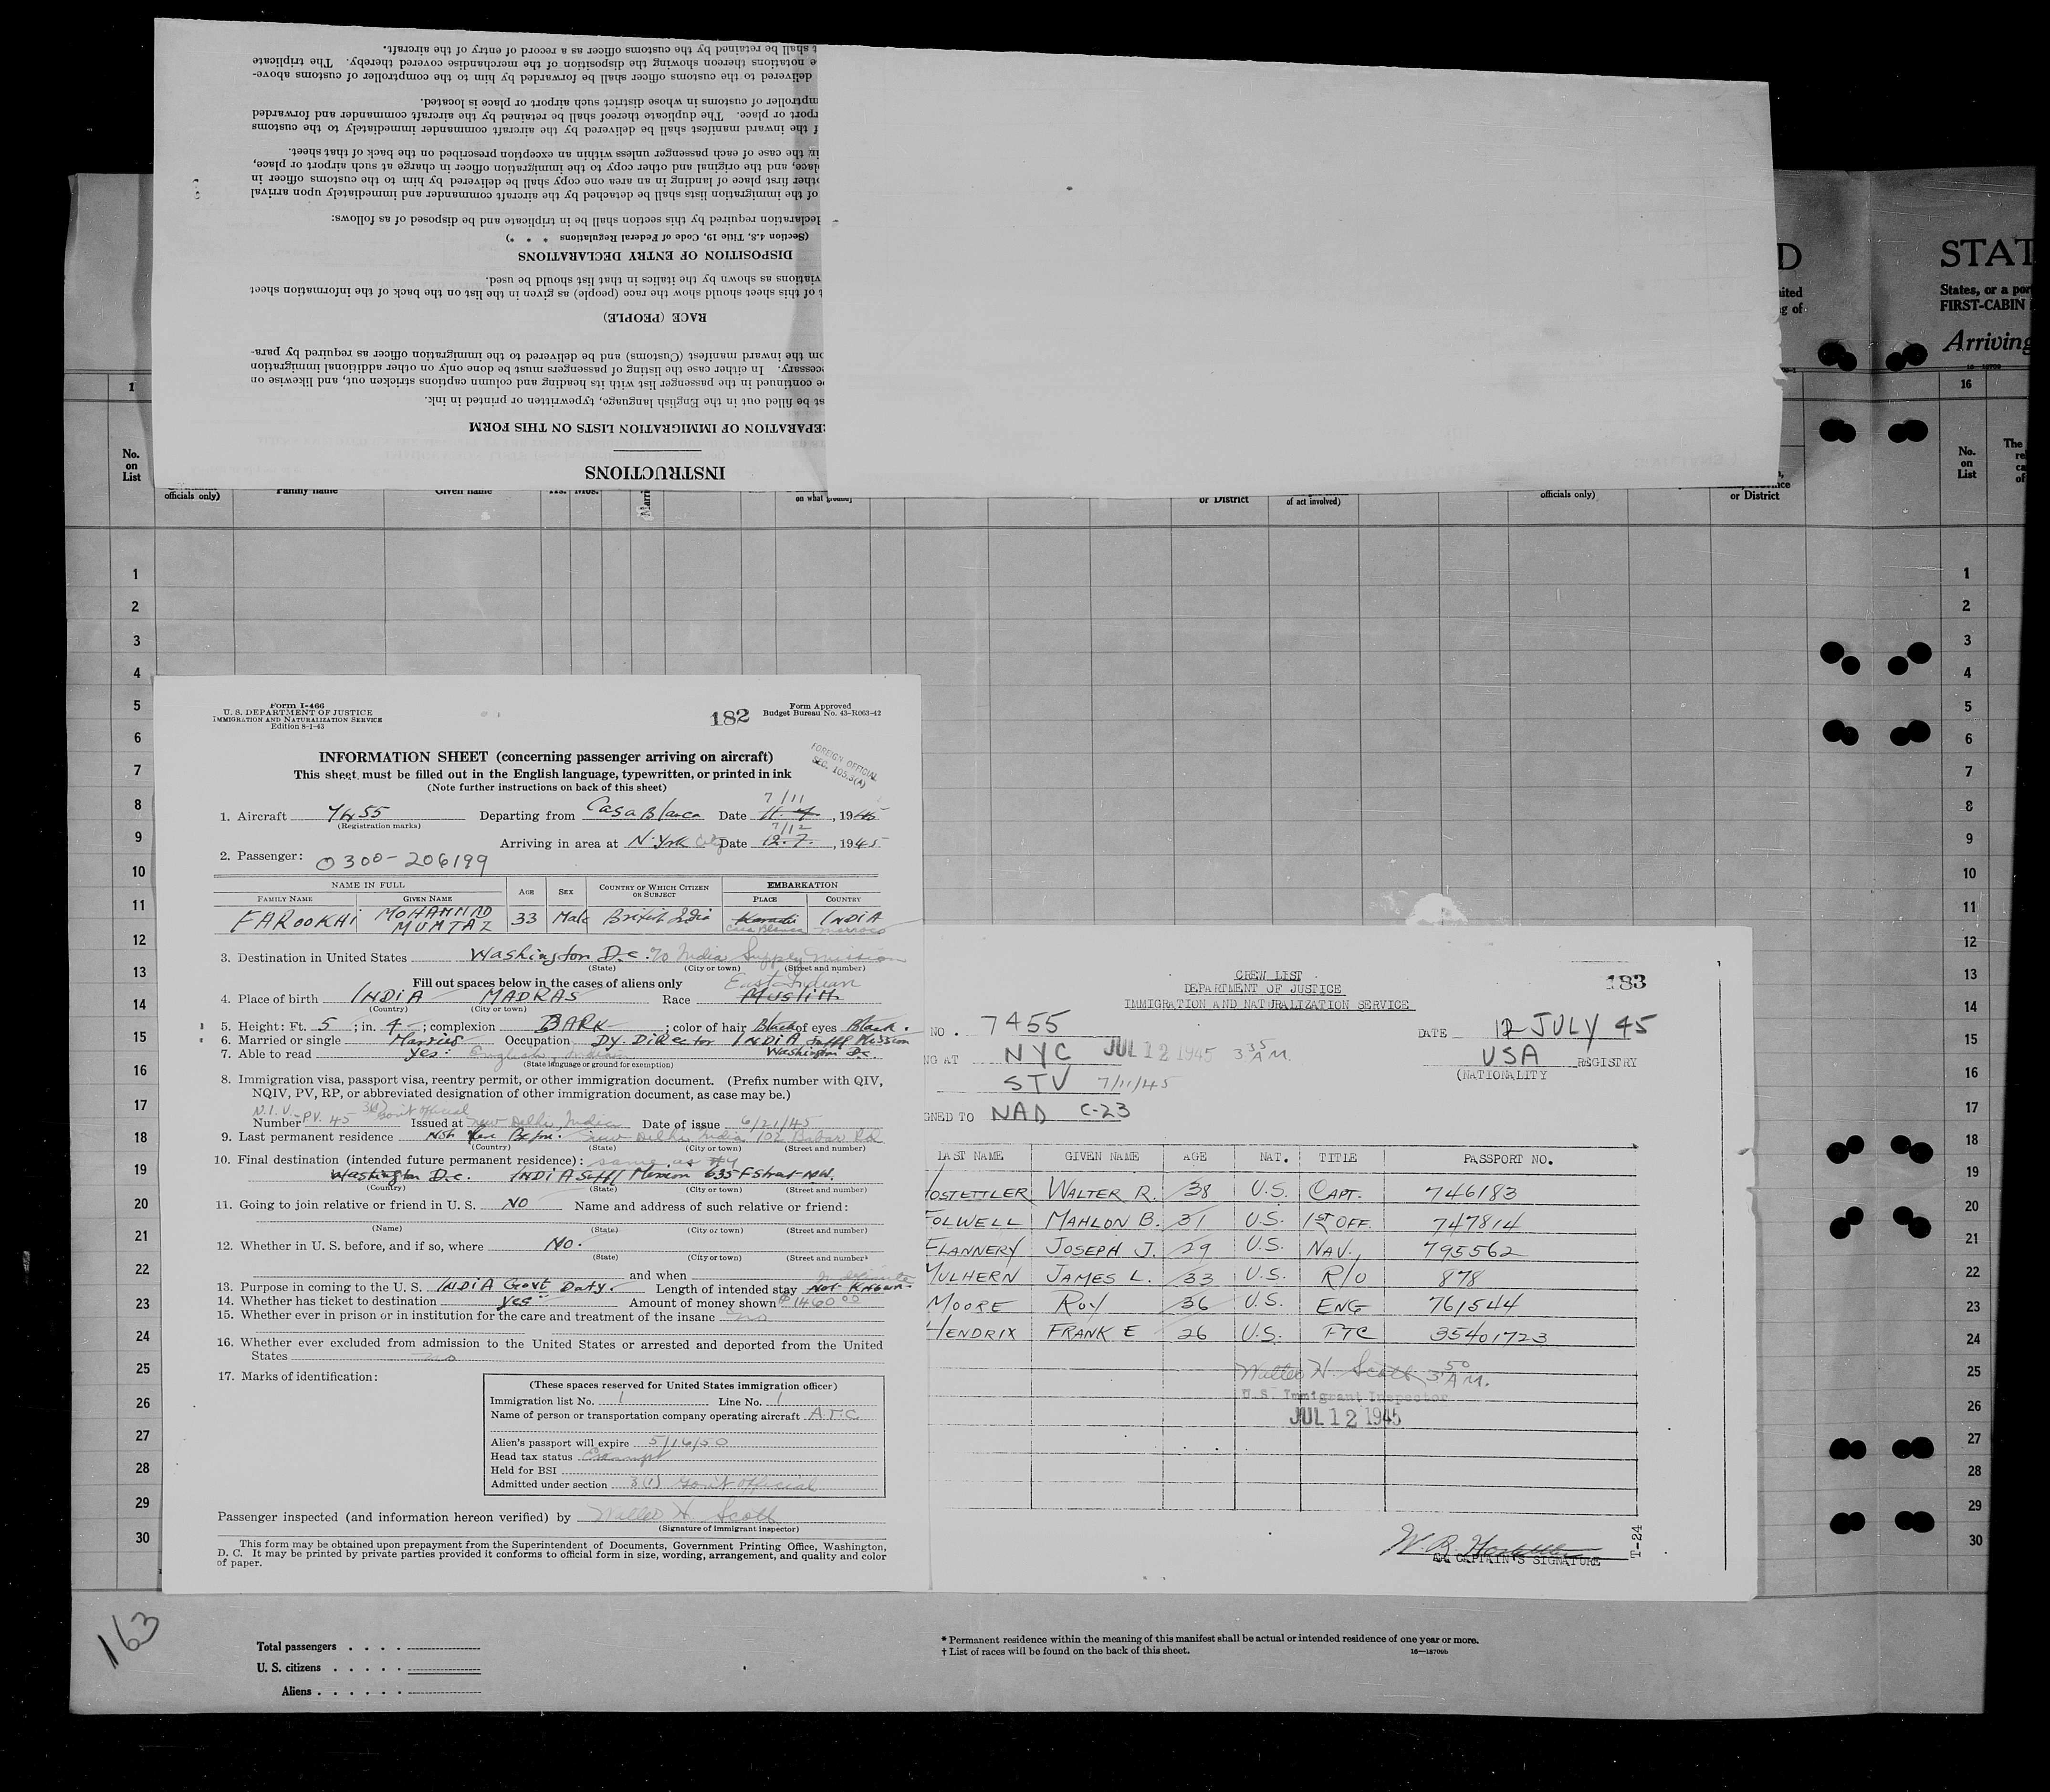 t shall be retained by the customs officer as a record of entry of the aircraft.
e notations thereon showing the disposition of the merchandise covered thereby. The triplicate
delivered to the customs officer shall be forwarded by him to the comptroller of customs above-
mptroller of customs in whose district such airport or place is located.
rport or place. The duplicate thereof shall be retained by the aircraft commander and forwarded
f the inward manifest shall be delivered by the aircraft commander immediately to the customs
in the case of each passenger unless within an exception prescribed on the back of that sheet.
place, and the original and other copy to the immigration officer in charge at such airport or place,
other first place of landing in an area one copy shall be delivered by him to the customs officer in
of the immigration lists shall be detached by the aircraft commander and immediately upon arrival
declaration required by this section shall be in triplicate and be disposed of as follows:
(Section 4.8, Title 19, Code of Federal Regulations * * *)
DISPOSITION OF ENTRY DECLARATIONS
viations as shown by the italics in that list should be used.
t of this sheet should show the race (people) as given in the list on the back of the information sheet
RACE (PEOPLE)
om the inward manifest (Customs) and be delivered to the immigration officer as required by para-
cessary. In either case the listing of passengers must be done only on other additional immigration
be continued in the passenger list with its heading and column captions stricken out, and likewise on
st be filled out in the English language, typewritten or printed in ink.
EPARATION OF IMMIGRATION LISTS ON THIS FORM
INSTRUCTIONS
D
ited
g of
STAT
States, or a por
FIRST-CABIN
Arriving
1
16
No. on List
officials only)
Family name
Given name
Yrs. Mos.
on what ground)
or District
of act involved)
officials only)
or District
No. on List
The
1
2
3
4
5
6
7
8
9
10
11
12
13
14
15
16
17
18
19
20
21
22
23
24
25
26
27
28
29
30
Form I-466
U. S. DEPARTMENT OF JUSTICE
IMMIGRATION AND NATURALIZATION SERVICE
Edition 8-1-43
182
Form Approved
Budget Bureau No. 43-R063-42
INFORMATION SHEET (concerning passenger arriving on aircraft)
FOREIGN OFFICIAL
SEC. 105.3(A)
This sheet must be filled out in the English language, typewritten, or printed in ink
(Note further instructions on back of this sheet)
7/11
1. Aircraft 7455 Departing from CasaBlanca Date 11.7, 1945
(Registration marks)
7/12
Arriving in area at N.York City Date 12.7., 1945
2. Passenger: 0300-206199
NAME IN FULL
FAMILY NAME GIVEN NAME AGE SEX COUNTRY OF WHICH CITIZEN OR SUBJECT EMBARKATION PLACE COUNTRY
FAROOKHI MOHAMMAD MUMTAZ 33 Male British India Karachi INDIA
Casa Blanca Morroco
3. Destination in United States Washington D.C. % India Supply Mission
(State) (City or town) (Street and number)
Fill out spaces below in the cases of aliens only
East Indian
4. Place of birth INDIA MADRAS Race Muslim
(Country) (City or town)
5. Height: Ft. 5; in. 4; complexion DARK; color of hair Black of eyes Black.
6. Married or single Married Occupation Dy. Director INDIA Suppl Mission
7. Able to read Yes: English, Indian Washington D.C.
(State language or ground for exemption)
8. Immigration visa, passport visa, reentry permit, or other immigration document. (Prefix number with QIV,
NQIV, PV, RP, or abbreviated designation of other immigration document, as case may be.)
N.I.V. 3(1) Gov't official
Number PV. 45 Issued at New Delhi, India Date of issue 6/21/45
9. Last permanent residence Not Here Before. New Delhi India 102 Babar Rd
(Country) (State) (City or town) (Street and number)
10. Final destination (intended future permanent residence): same as #4
Washington D.C. INDIA Suppl Mission 635 F Street N.W.
(Country) (State) (City or town) (Street and number)
11. Going to join relative or friend in U. S. NO Name and address of such relative or friend:
(Name) (State) (City or town) (Street and number)
12. Whether in U. S. before, and if so, where NO.
(State) (City or town) (Street and number)
and when
Indefinite
13. Purpose in coming to the U. S. INDIA Govt Duty. Length of intended stay Not Known
14. Whether has ticket to destination Yes Amount of money shown $1460.00
15. Whether ever in prison or in institution for the care and treatment of the insane no
16. Whether ever excluded from admission to the United States or arrested and deported from the United
States no
17. Marks of identification:
(These spaces reserved for United States immigration officer)
Immigration list No. 1 Line No. 1
Name of person or transportation company operating aircraft A.T.C
Alien's passport will expire 5/16/50
Head tax status Exempt
Held for BSI
Admitted under section 3(1) Gov't Official
Passenger inspected (and information hereon verified) by Walter H. Scott
(Signature of immigrant inspector)
This form may be obtained upon prepayment from the Superintendent of Documents, Government Printing Office, Washington,
D. C. It may be printed by private parties provided it conforms to official form in size, wording, arrangement, and quality and color
of paper.
CREW LIST
183
DEPARTMENT OF JUSTICE
IMMIGRATION AND NATURALIZATION SERVICE
NO. 7455 DATE 12 JULY 45
NG AT NYC JUL 12 1945 3 35 A.M. USA REGISTRY
(NATIONALITY
STV 7/11/45
GNED TO NAD C-23
LAST NAME GIVEN NAME AGE NAT. TITLE PASSPORT NO.
HOSTETTLER WALTER R. 38 U.S. CAPT. 746183
FOLWELL MAHLON B. 31 U.S. 1ST OFF. 747814
FLANNERY JOSEPH J. 29 U.S. NAV. 795562
MULHERN JAMES L. 33 U.S. R/O 878
MOORE ROY 36 U.S. ENG 761544
HENDRIX FRANK E 26 U.S. FTC 35401723
Walter H. Scott 3 50 A.M.
U.S. Immigrant Inspector
JUL 12 1945
W. R. Hostettler
CAPTAIN'S SIGNATURE
T-24
163
Total passengers . . . .
U. S. citizens . . . . .
Aliens . . . . . .
* Permanent residence within the meaning of this manifest shall be actual or intended residence of one year or more.
† List of races will be found on the back of this sheet.
16—18700b